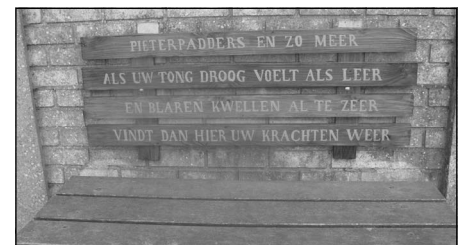 PIETERPADDERS EN ZO MEER
ALS UW TONG DROOG VOELT ALS LEER
EN BLAREN KWELLEN AL TE ZEER
VINDT DAN HIER UW KRACHTEN WEER